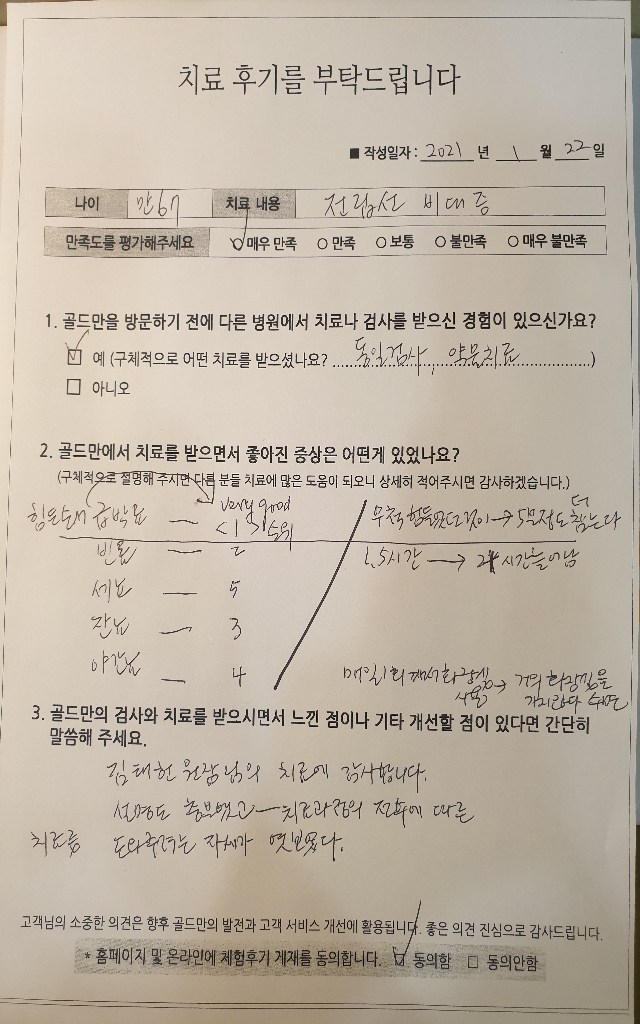 치료 후기를 부탁드립니다
■ 작성일자 : 2021 년 1 월 22 일
나이 만67 치료 내용 전립선 비대증
만족도를 평가해주세요 ○ 매우 만족 ○ 만족 ○ 보통 ○ 불만족 ○ 매우 불만족
1. 골드만을 방문하기 전에 다른 병원에서 치료나 검사를 받으신 경험이 있으신가요?
☑ 예 (구체적으로 어떤 치료를 받으셨나요? 동일검사, 약물치료 )
□ 아니오
2. 골드만에서 치료를 받으면서 좋아진 증상은 어떤게 있었나요?
(구체적으로 설명해 주시면 다른 분들 치료에 많은 도움이 되오니 상세히 적어주시면 감사하겠습니다.)
힘든순서 급박뇨 — very good <1> 순위 무척 힘들었던 것이 → 5분정도 더 참는다
빈뇨 — 2 1.5시간 → 2시간 늘어남
세뇨 — 5
잔뇨 — 3
야간뇨 — 4 매일 1회 깨서 화장실 사용 → 거의 화장실을
3. 골드만의 검사와 치료를 받으시면서 느낀 점이나 기타 개선할 점이 있다면 간단히
말씀해 주세요.
김태헌 원장님의 치료에 감사합니다.
설명도 충분했고 — 치료과정의 전후에 따른
치료를 도와주려는 자세가 엿보였다.
고객님의 소중한 의견은 향후 골드만의 발전과 고객 서비스 개선에 활용됩니다. 좋은 의견 진심으로 감사드립니다.
* 홈페이지 및 온라인에 체험후기 게재를 동의합니다. ☑ 동의함 □ 동의안함